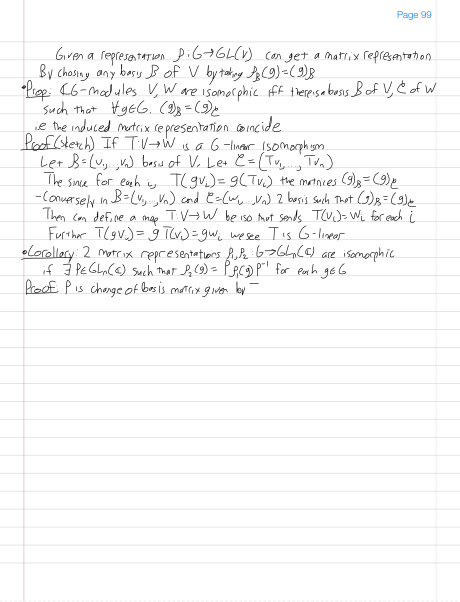 Page 99
Given a representation ρ: G→GL(V) can get a matrix representation
By chosing any basis B of V by taking ρ_B(g)=(g)_B
•Prop: ℂG-modules V, W are isomorphic iff there is a basis B of V, C of W
such that ∀g∈G. (g)_B = (g)_C
i.e the induced matrix representation coincide
Proof (sketch) If T: V→W is a G-linear isomorphism
Let B=(v₁,...,vₙ) basis of V. Let C = (Tv₁,..., Tvₙ)
The since for each i, T(gvᵢ) = g(Tvᵢ) the matrices (g)_B = (g)_C
-Conversely in B=(v₁,...,vₙ) and C=(w₁,...,vₙ) 2 basis such that (g)_B = (g)_C
Then can define a map T: V→W be iso that sends T(vᵢ)=wᵢ for each i
Further T(gvᵢ) = g T(vᵢ) = gwᵢ we see T is G-linear
•Corollary: 2 matrix representations ρ₁,ρ₂: G→GLₙ(ℂ) are isomorphic
if ∃ P∈GLₙ(ℂ) such that ρ₂(g) = Pρ₁(g)P⁻¹ for each g∈G
Proof: P is change of basis matrix given by T